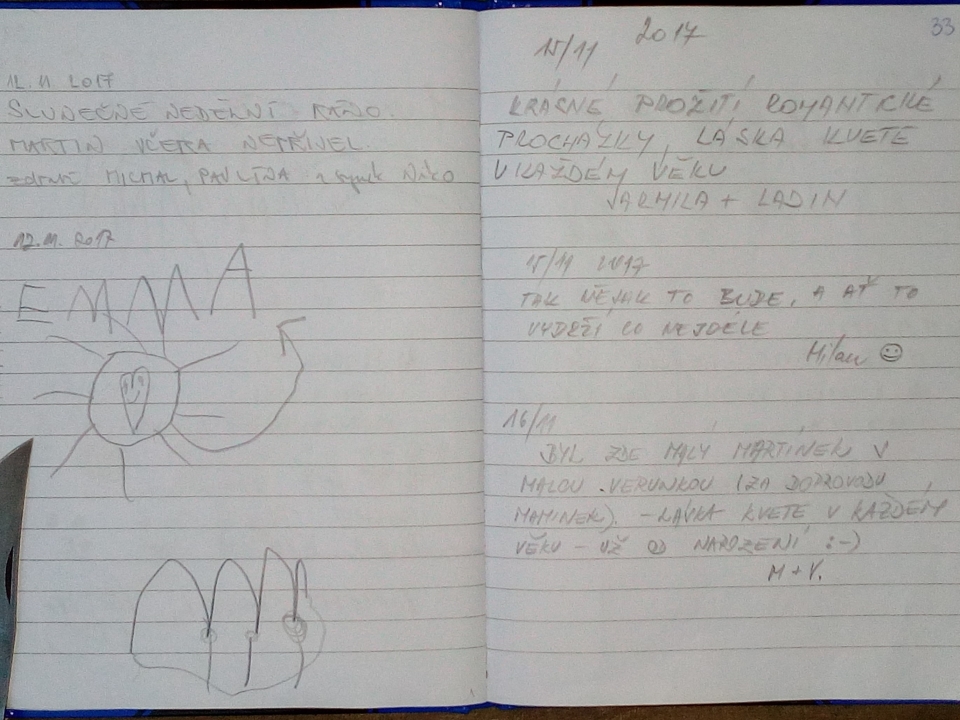 12. 11. 2017
SLUNEČNÉ NEDĚLNÍ RÁNO.
MARTIN VČERA NEPŘIJEL.
zdraví MICHAL, PAVLÍNA a synek Niko
12. 11. 2017
EMMA
33
15/11 2017
KRÁSNÉ PROŽITÍ ROMANTICKÉ
PROCHÁZKY, LÁSKA KVETE
V KAŽDÉM VĚKU
JARMILA + LADIN
15/11 2017
TAK NĚJAK TO BUDE, A AŤ TO
VYDRŽÍ CO NEJDÉLE
Milan ☺
16/11
BYL ZDE MALÝ MARTÍNEK S
MALOU VERUNKOU (ZA DOPROVODU
MAMINEK). - LÁVKA KVETE V KAŽDÉM
VĚKU - UŽ OD NAROZENÍ :-)
M + V.